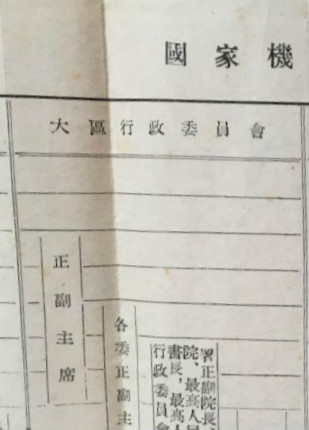 國家機
大區行政委員會
正副主席
各委正副主
署正副院長
院、最高人民
書長，最高人
行政委員會